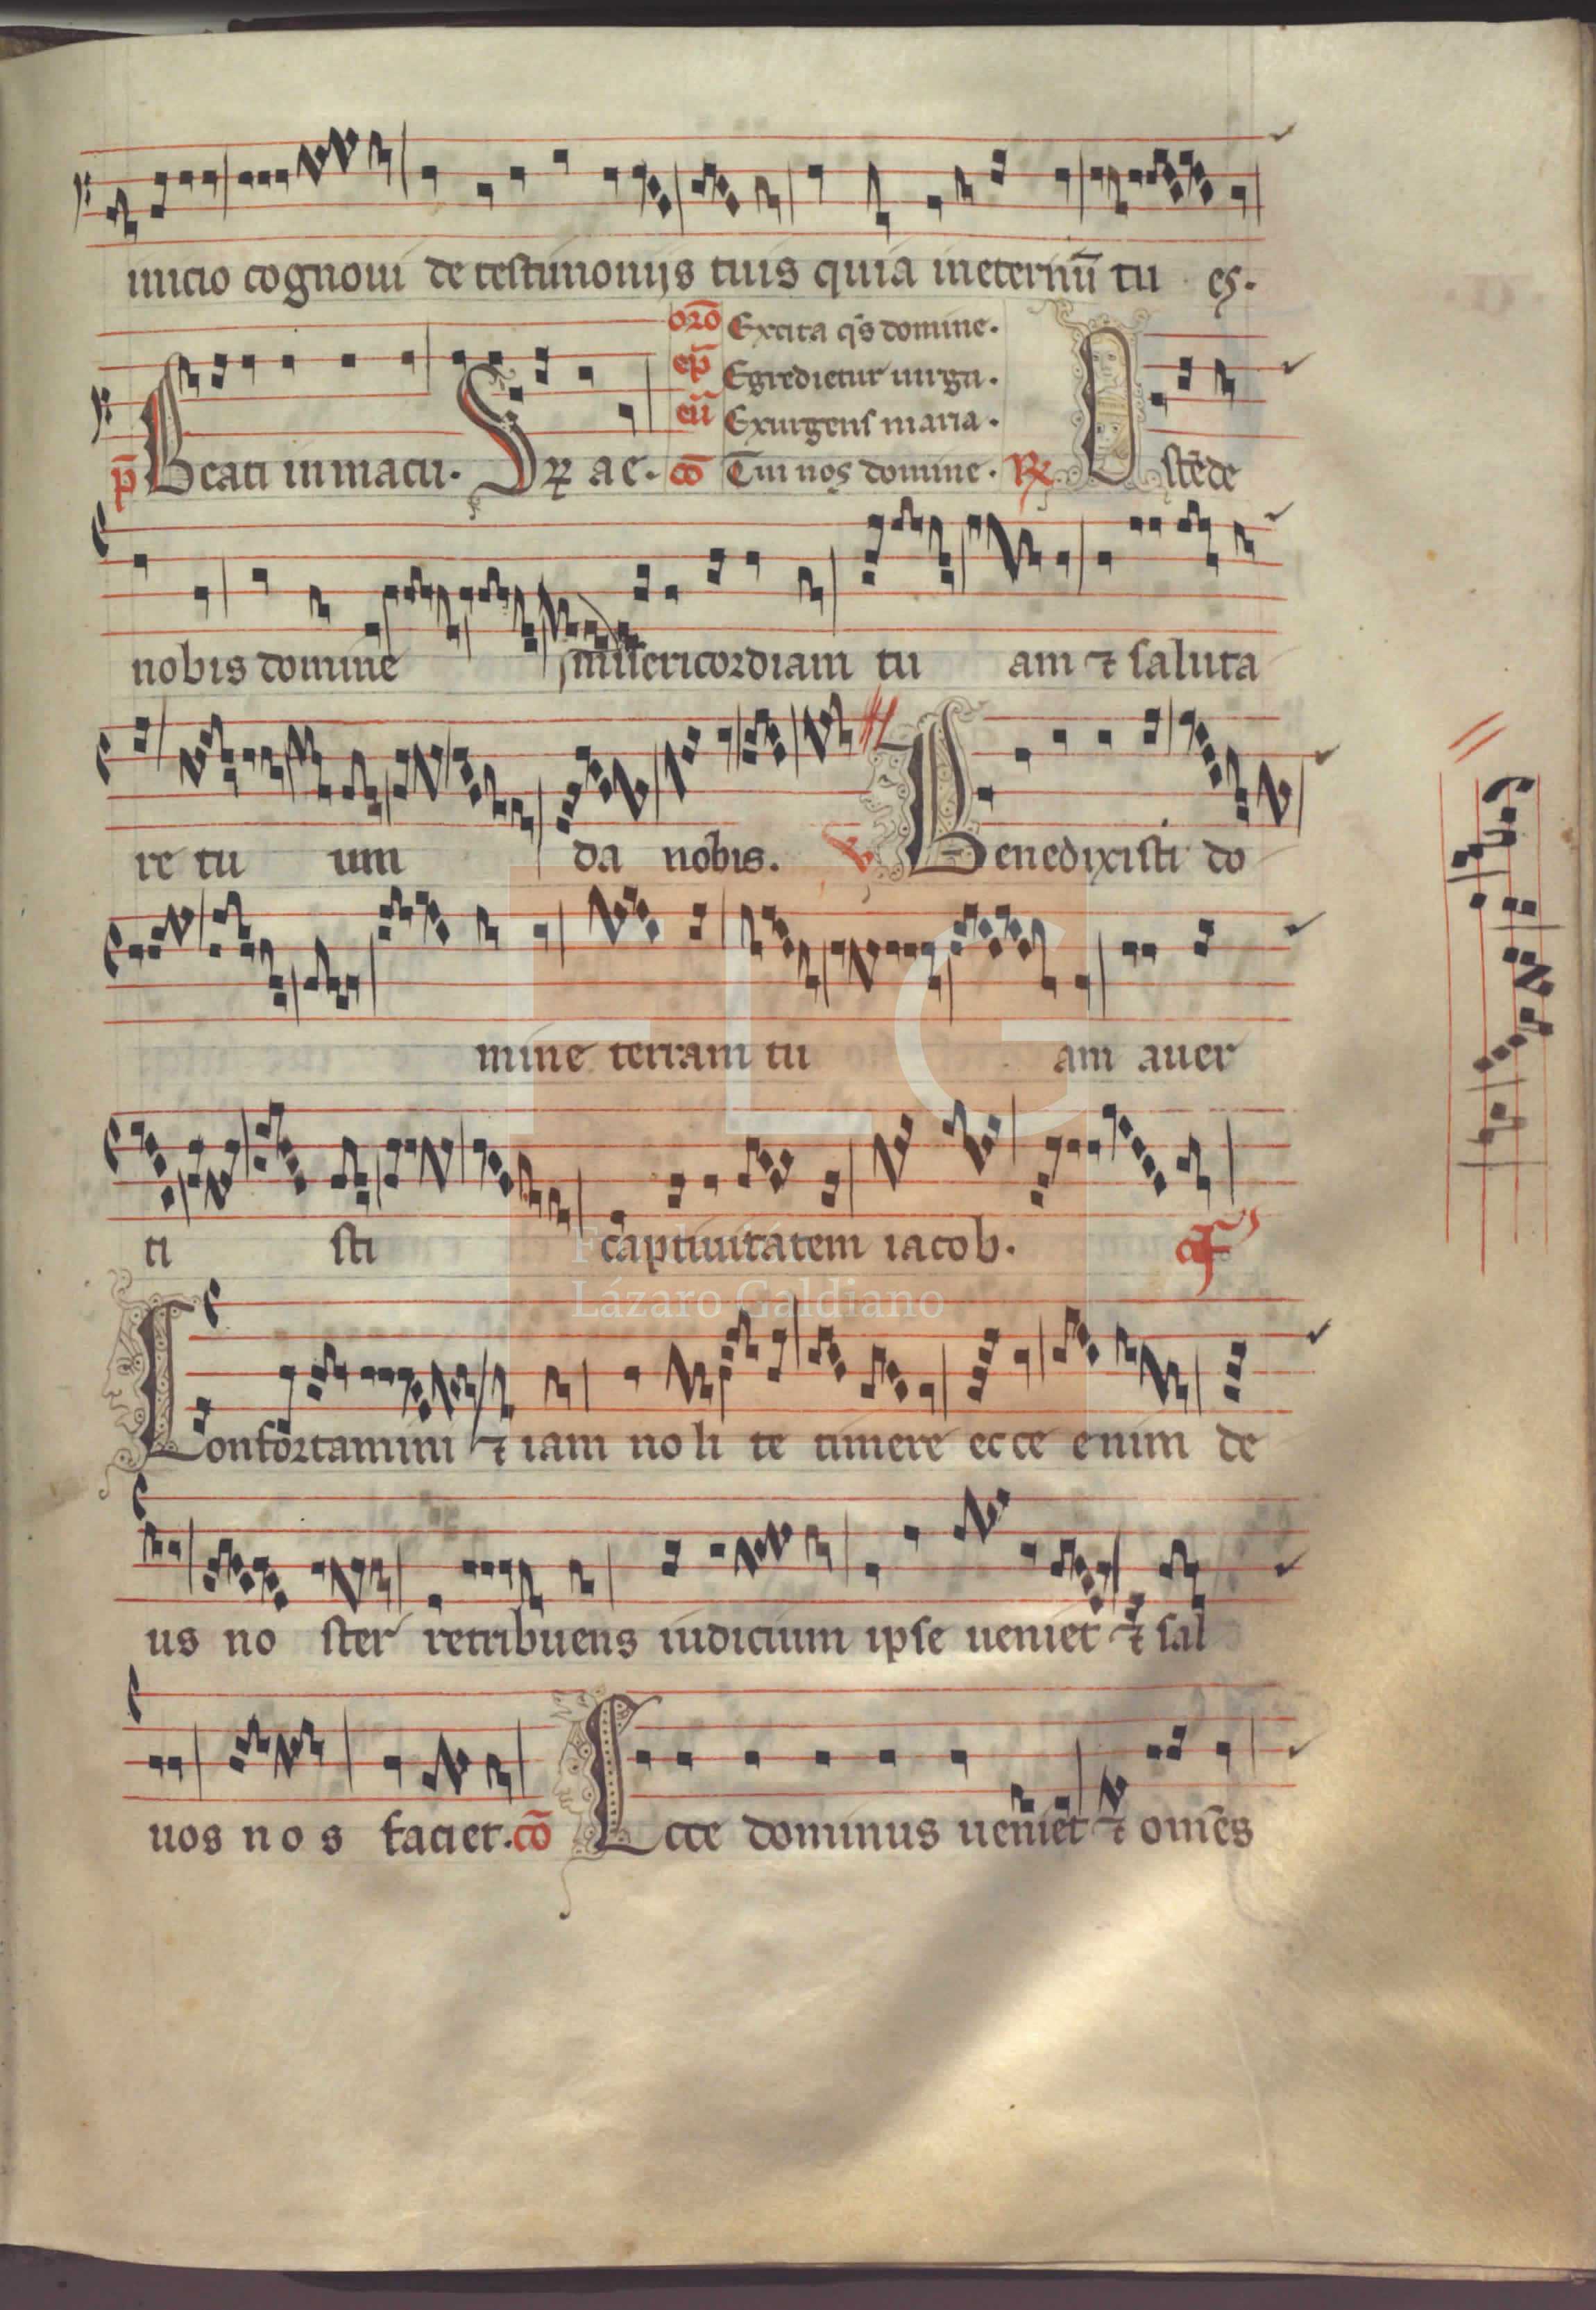 inicio cognoui de testimonijs tuis quia ineternū tu es.
oro Excita qs domine.
ep Egredietur uirga.
eu Exurgens maria.
p Beati inmacu. ae. co Tui nos domine. R Ostēde
nobis domine misericordiam tu am ⁊ saluta
re tu um da nobis. V Benedixisti do
mine terram tu am auer
ti sti captiuitatem iacob. of
Confortamini ⁊ iam noli te timere ecce enim de
us no ster retribuens iudicium ipse ueniet ⁊ sal
uos nos faciet. co Ecce dominus ueniet ⁊ omēs
FLG
Lázaro Galdiano